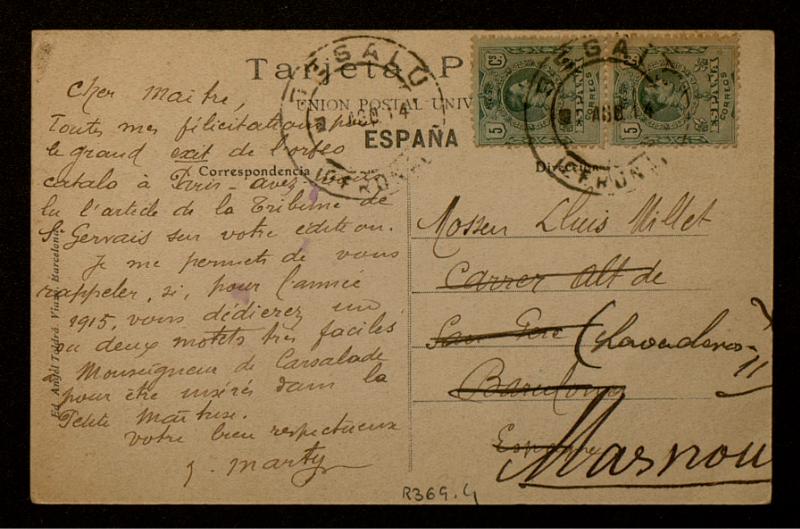 Tarjeta P
UNION POSTAL UNIV
ESPAÑA
Correspondencia
Dirección
BESALU
AGO 14
(GERONA)
BESALU
AGO 14
(GERONA)
5 Cs
ESPAÑA
CORREOS
5
ESPAÑA
CORREOS
Cher Maître,
Toutes mes félicitations pour
le grand exit de l'orfeo
catalo à Paris - avez-vous
lu l'article de la Tribune de
St Gervais sur votre édition.
Je me permets de vous
rappeler, si, pour l'année
1915, vous dédierez un
ou deux motets très faciles
Monseigneur de Carsalade
pour être insérés dans la
Petite Maîtrise.
Votre bien respectueux
J. Marty
Mossen Lluis Millet
Carrer Alt de
San Pere (Lavaderos
11
Barcelona
Espagne
Masnou
Ed. Angel Toldrá Viazo, Barcelona
R369.4